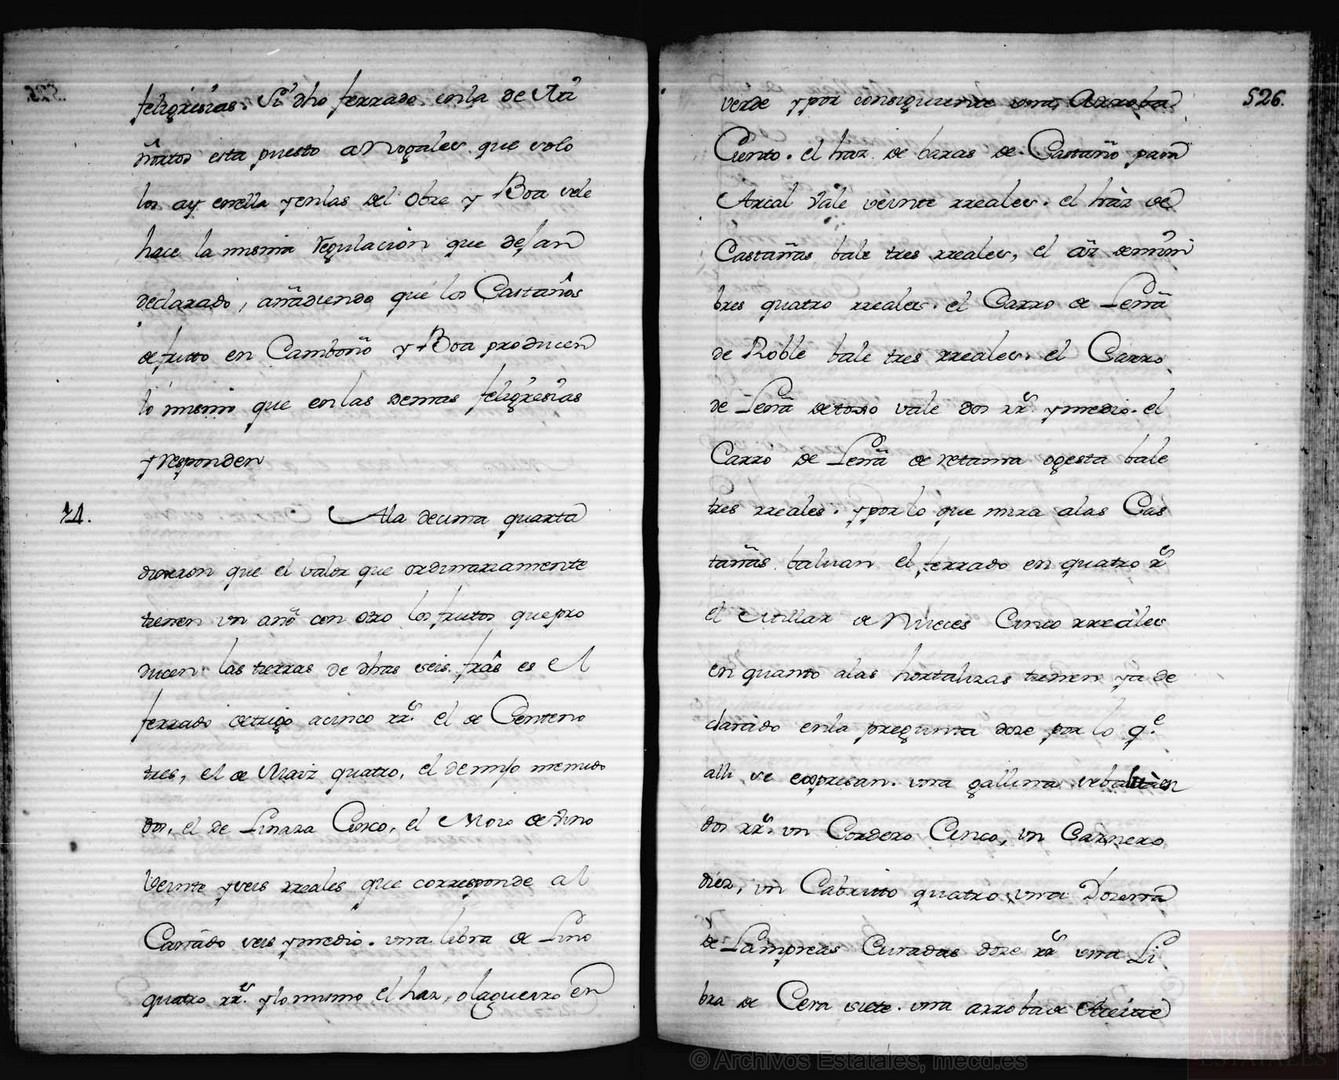 feligresias. Si dho ferrado enla de
ñortos esta puesto a Nogales que solo
los ay enella y enlas del Obre y Boa se le
hace la misma regulacion que dejan
declarado, añadiendo que los Castaños
de frutto en Camboño y Boa producen
lo mismo que en las demas feligresias
y responden
14. Ala decima quarta
dixeron que el valor que ordinariamente
tienen un año con otro los frutos que pro
ducen las tierras de dhas seis fras es el
ferrado de trigo a cinco rrs. el de Centeno
tres, el de Maiz quatro, el de mijo menudo
dos, el de Linaza Cinco, el Moio de vino
Veinte y seis rreales que corresponde al
Cañado seis y medio. una libra de Lino
quatro rrs. y lo mismo el haz, o laguerxo en
526.
verde y por consiguiente una Arroba
Ciento. el haz de baras de Castaño para
Arcal Vale veinte rreales. el haz de
Castañas bale tres rreales, el az de mim
bres quatro rreales. el Carro de Leña
de Roble bale tres rreales. el Carro
de Leña de toxo vale dos rrs y medio. el
Carro de Leña de retama o gesta bale
tres rreales. y por lo que mira alas Cas
tañas baluan el ferrado en quatro rs
el de Nueces Cinco rreales
en quanto alas hortalizas tienen ya de
clarado enla pregunta doze por lo qe.
alli se expresan. una gallina
dos rrs. un Cordero Cinco, un Carnero
diez, un Cabritto quatro una Dozena
de Lampreas Curadas doze rrs una Li
bra de Cera siete. una arroba de Aceite
© Archivos Estatales, mecd.es
ARCHIVOS
ESTATALES